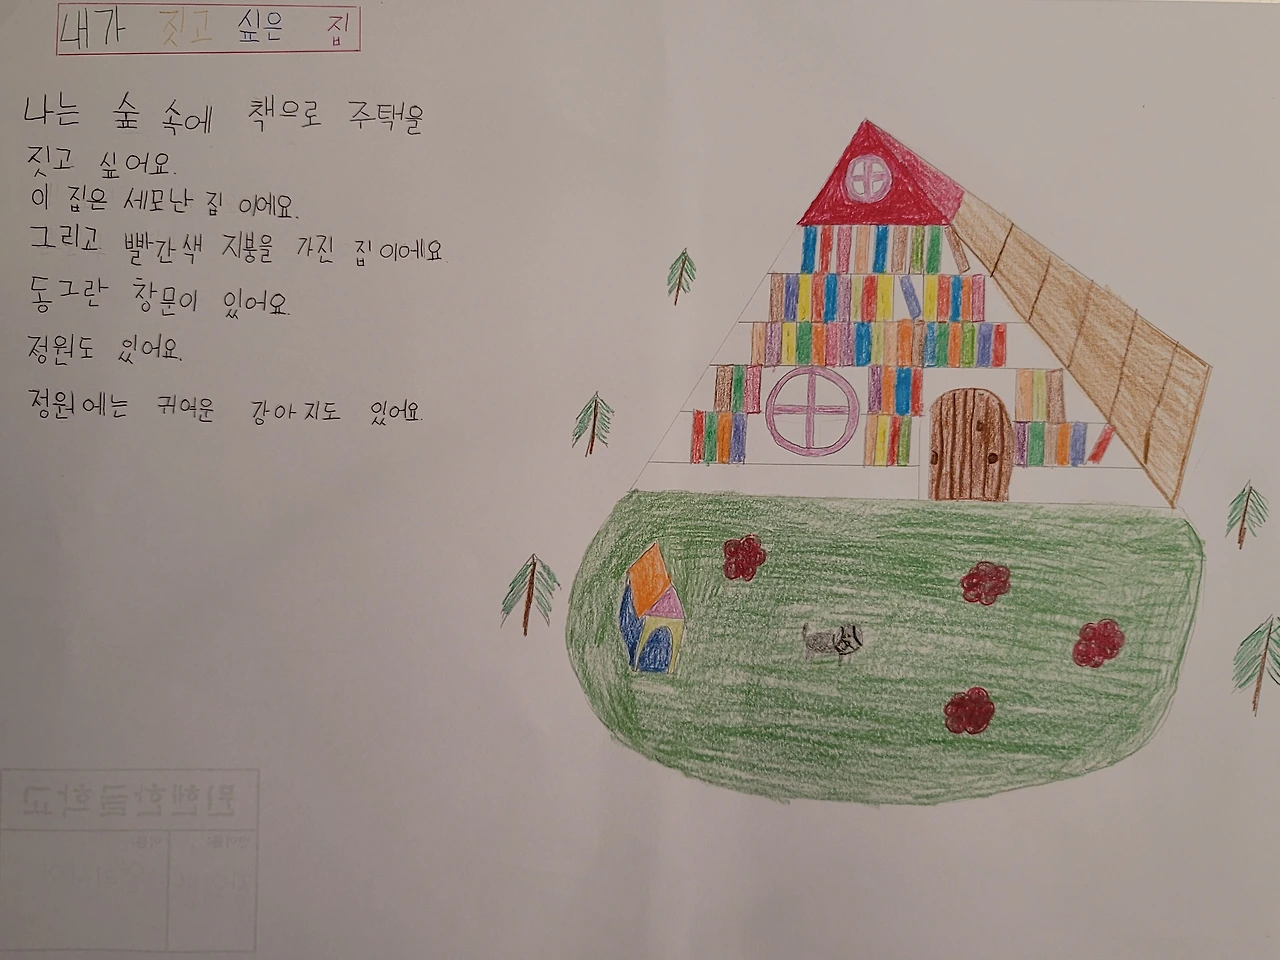 내가 짓고 싶은 집
나는 숲 속에 책으로 주택을
짓고 싶어요.
이 집은 세모난 집 이에요.
그리고 빨간색 지붕을 가진 집이에요
동그란 창문이 있어요.
정원도 있어요.
정원에는 귀여운 강아지도 있어요.
뮌헨한글학교